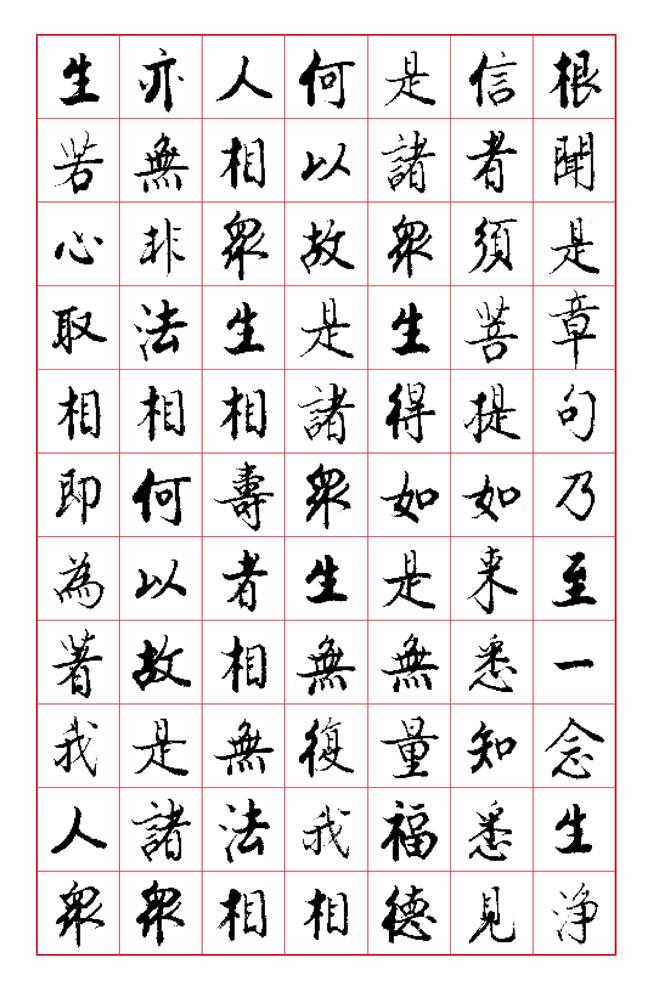 根聞是章句乃至一念生淨
信者須菩提如来悉知悉見
是諸衆生得如是無量福德
何以故是諸衆生無復我相
人相衆生相壽者相無法相
亦無非法相何以故是諸衆
生若心取相即為著我人衆